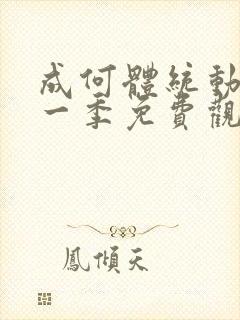 成何體統動
一季免費觀
鳳傾天